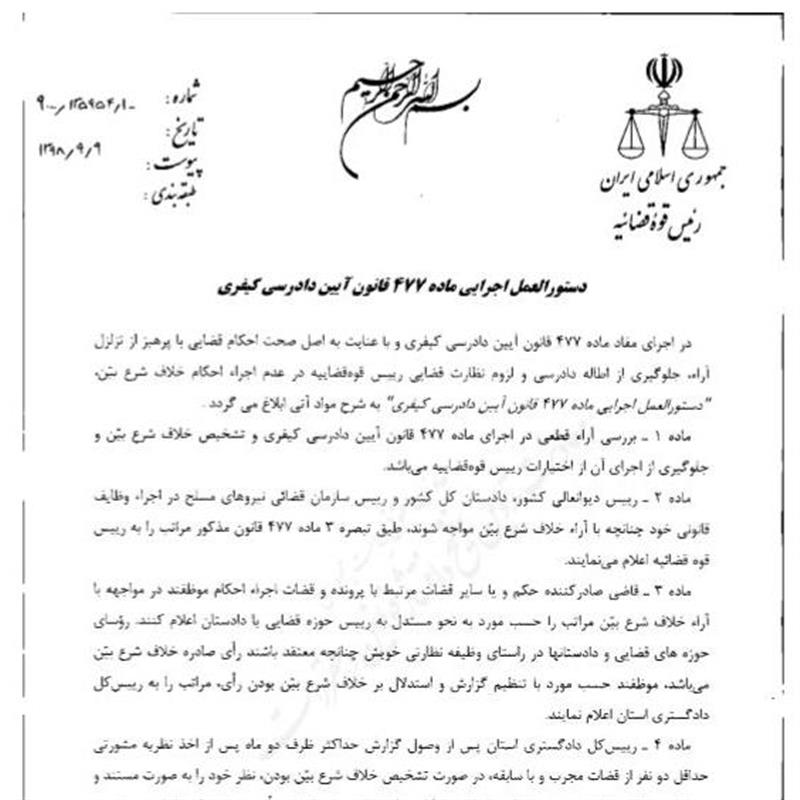 بسم الله الرحمن الرحیم
جمهوری اسلامی ایران
رئیس قوهٔ قضائیه
شماره: ۹۰۰۰/۱۳۵۹۵۴/۱۰
تاریخ: ۱۳۹۸/۹/۹
پیوست:
طبقه‌بندی:
دستورالعمل اجرایی ماده ۴۷۷ قانون آیین دادرسی کیفری
در اجرای مفاد ماده ۴۷۷ قانون آیین دادرسی کیفری و با عنایت به اصل صحت احکام قضایی با پرهیز از تزلزل
آراء، جلوگیری از اطاله دادرسی و لزوم نظارت قضایی رییس قوه‌قضاییه در عدم اجراء احکام خلاف شرع بیّن،
"دستورالعمل اجرایی ماده ۴۷۷ قانون آیین دادرسی کیفری" به شرح مواد آتی ابلاغ می گردد.
ماده ۱ ـ بررسی آراء قطعی در اجرای ماده ۴۷۷ قانون آیین دادرسی کیفری و تشخیص خلاف شرع بیّن و
جلوگیری از اجرای آن از اختیارات رییس قوه‌قضاییه می‌باشد.
ماده ۲ ـ رییس دیوانعالی کشور، دادستان کل کشور و رییس سازمان قضائی نیروهای مسلح در اجراء وظایف
قانونی خود چنانچه با آراء خلاف شرع بیّن مواجه شوند، طبق تبصره ۳ ماده ۴۷۷ قانون مذکور مراتب را به رییس
قوه قضائیه اعلام می‌نمایند.
ماده ۳ ـ قاضی صادرکننده حکم و یا سایر قضات مرتبط با پرونده و قضات اجراء احکام موظفند در مواجهه با
آراء خلاف شرع بیّن مراتب را حسب مورد به نحو مستدل به رییس حوزه قضایی یا دادستان اعلام کنند. رؤسای
حوزه های قضایی و دادستانها در راستای وظیفه نظارتی خویش چنانچه معتقد باشند رأی صادره خلاف شرع بیّن
می‌باشد، موظفند حسب مورد با تنظیم گزارش و استدلال بر خلاف شرع بیّن بودن رأی، مراتب را به رییس‌کل
دادگستری استان اعلام نمایند.
ماده ۴ ـ رییس‌کل دادگستری استان پس از وصول گزارش حداکثر ظرف دو ماه پس از اخذ نظریه مشورتی
حداقل دو نفر از قضات مجرب و با سابقه، در صورت تشخیص خلاف شرع بیّن بودن، نظر خود را به صورت مستند و